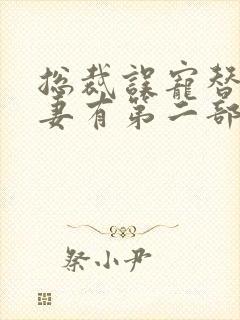 总裁误宠替
妻有第二部
祭小尹